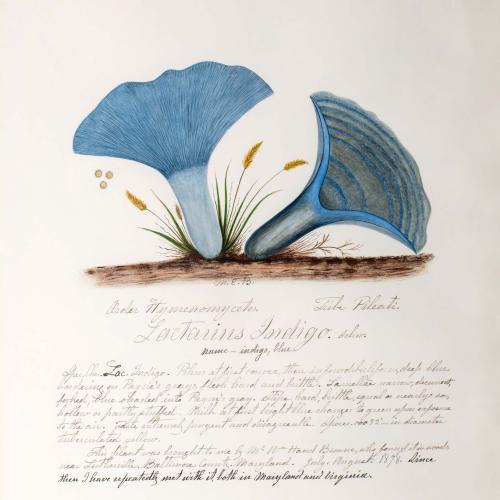 M.E.B.
Order Hymenomycetes. Tribe Pileati.
Lactarius Indigo. Schw.
name – indigo, blue.
Lac. Indigo. Pileus at first convex, then infundibuliform, deep blue
bordering on Payne's gray, flesh hard and brittle. Lamellae narrow, decurrent
forked, blue shaded into Payne's gray. Stipe hard, brittle, equal or nearly so,
hollow or partly stuffed. Milk at first bright blue change to green upon exposure
to the air. Taste astringent, pungent and disagreeable. Spores in diameter
tuberculated yellow.
This plant was brought to me by Mr. Wm Hand Browne, who found it in woods
near Lutherville, Baltimore County, Maryland. July, August, 1878. Since
then I have repeatedly met with it both in Maryland and Virginia.